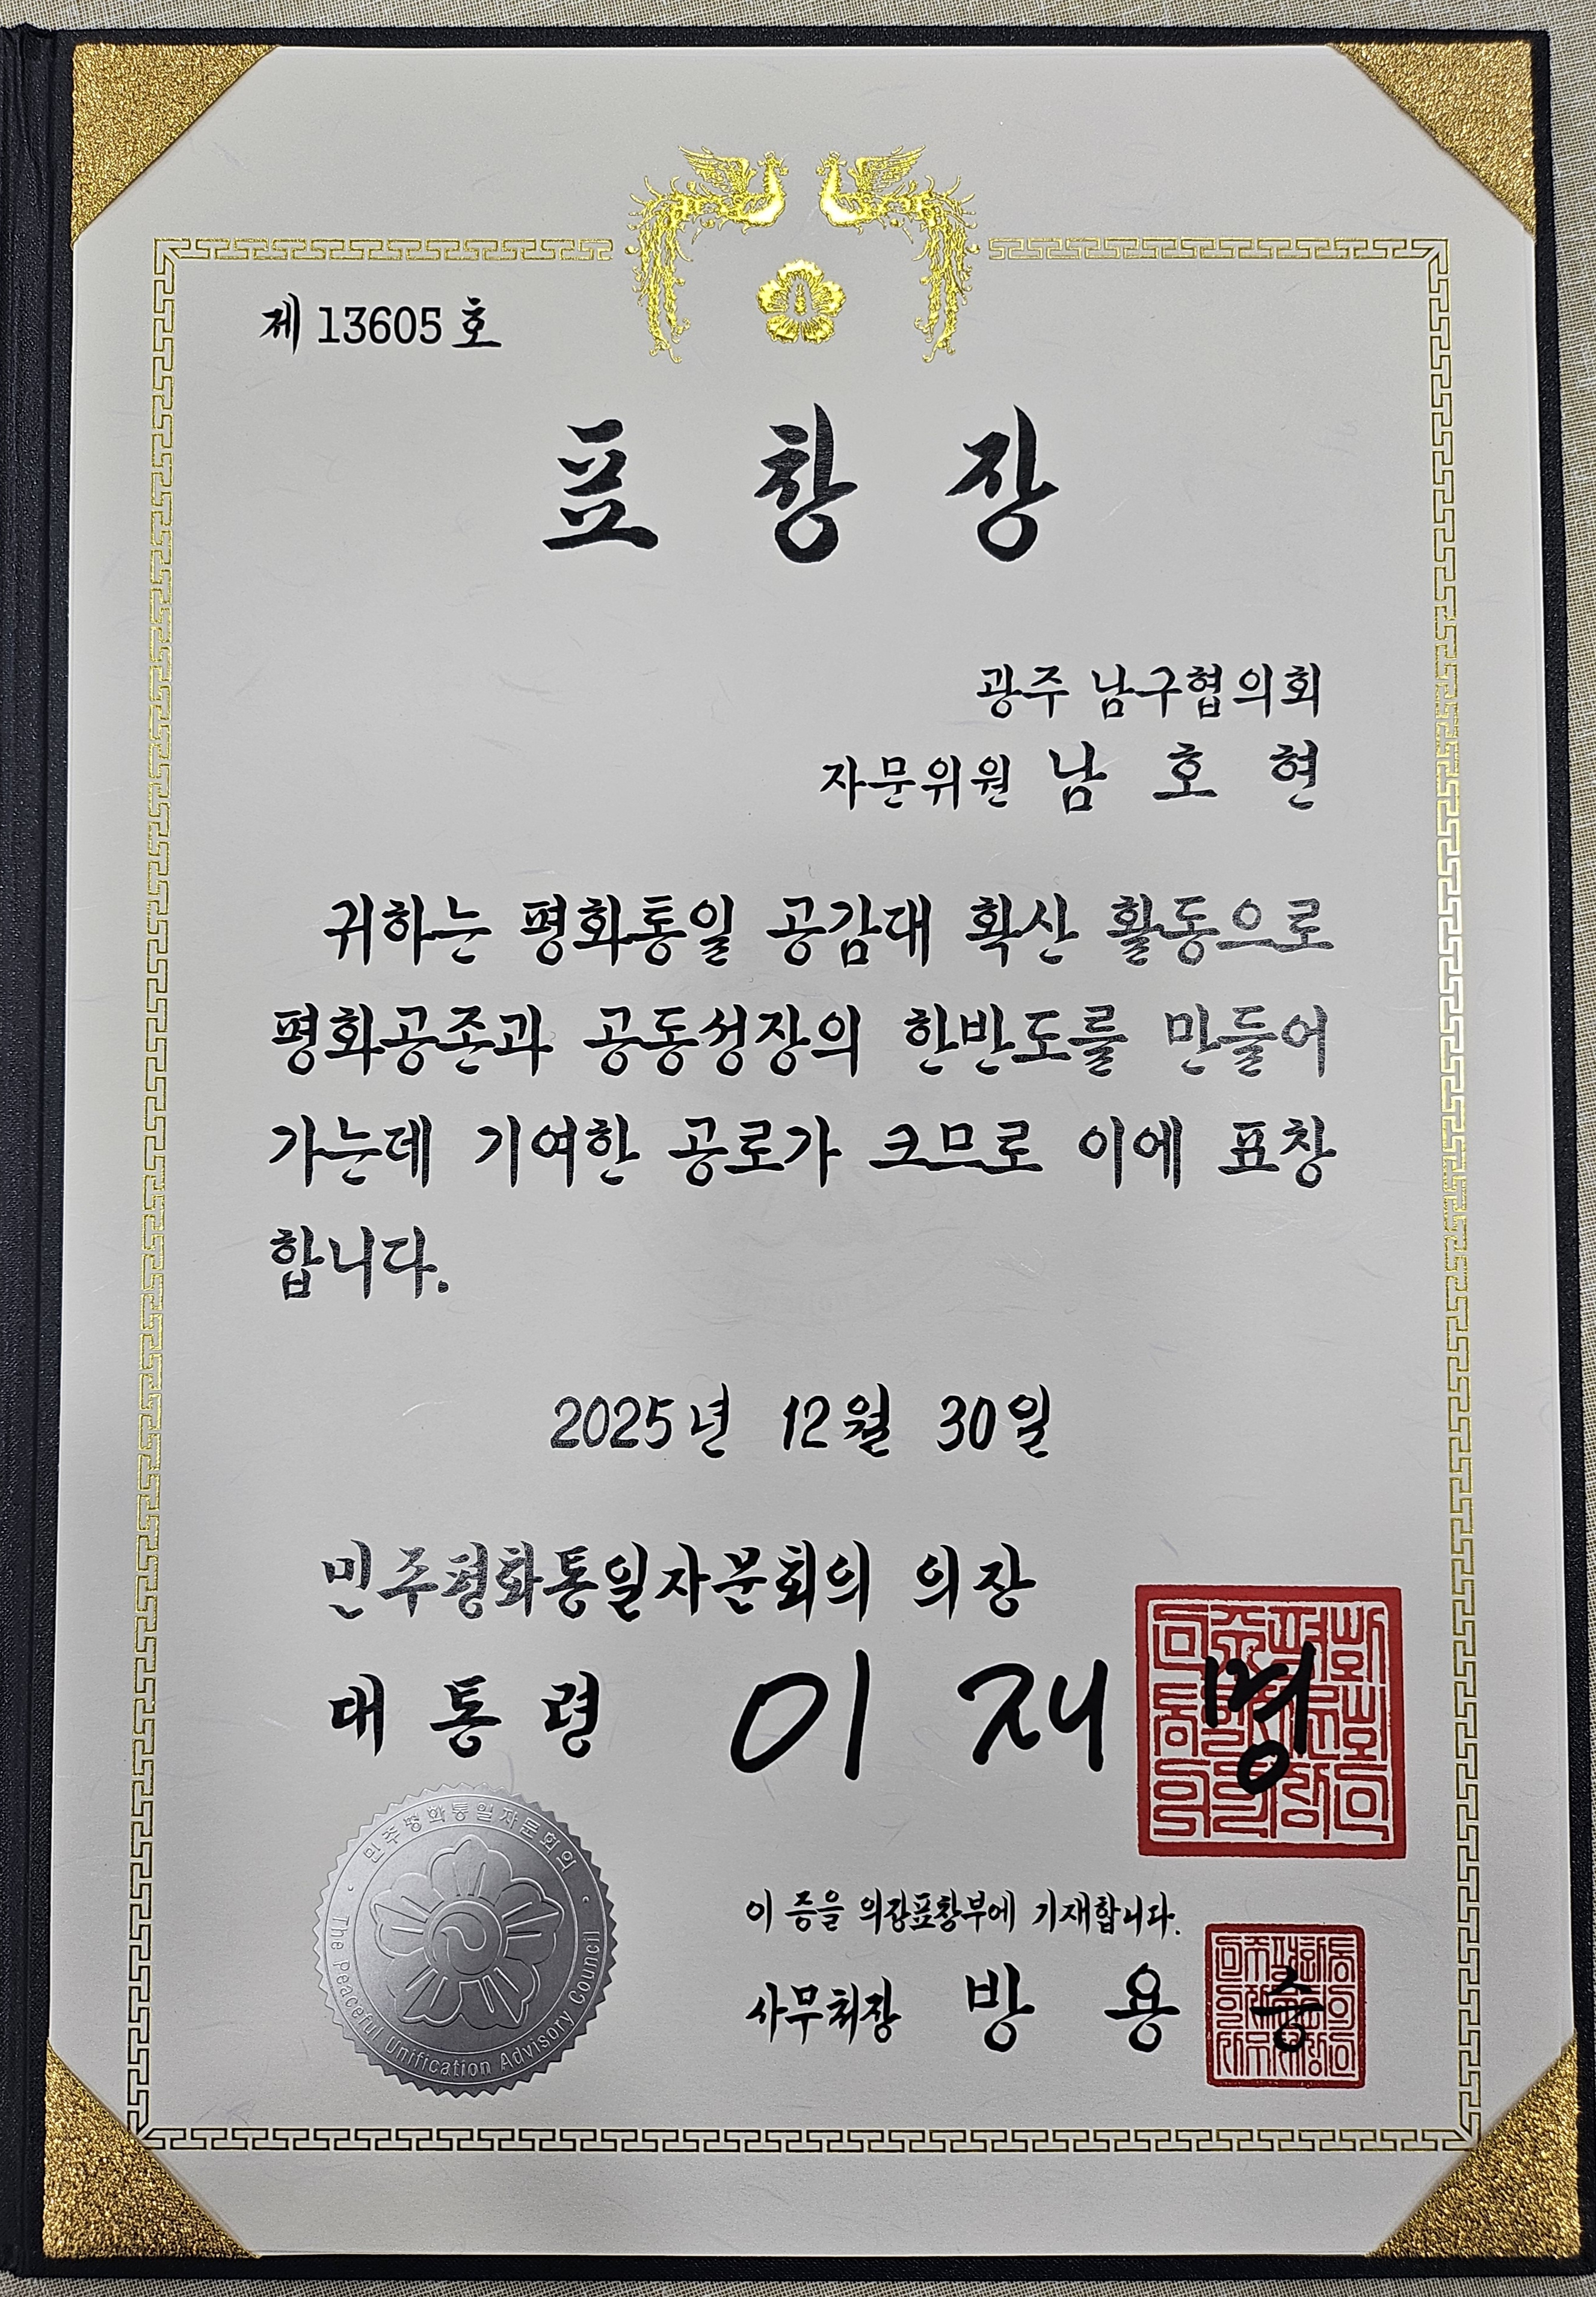 제 13605 호
표 창 장
광주 남구협의회
자문위원 남 호 현
귀하는 평화통일 공감대 확산 활동으로
평화공존과 공동성장의 한반도를 만들어
가는데 기여한 공로가 크므로 이에 표창
합니다.
2025년 12월 30일
민주평화통일자문회의 의장
대 통 령 이 재 명
민주평화통일자문회의
The Peaceful Unification Advisory Council
이 증을 의장표창부에 기재합니다.
사무처장 방 용 승